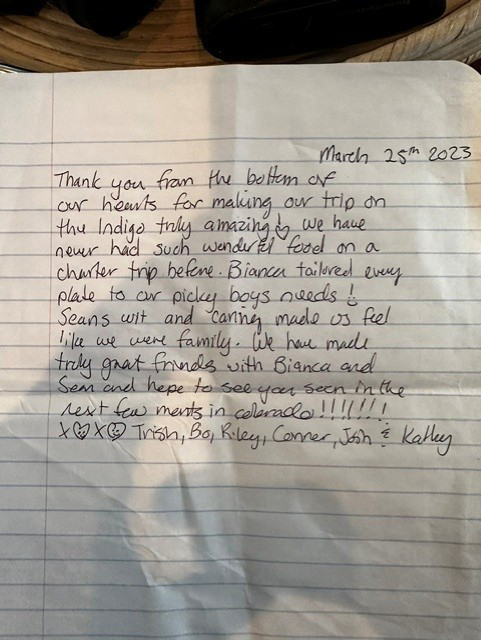 March 25th 2023
Thank you from the bottom of
our hearts for making our trip on
the Indigo truly amazing! We have
never had such wonderful food on a
charter trip before. Bianca tailored every
plate to our picky boys needs!
Seans wit and caring made us feel
like we were family. We have made
truly great friends with Bianca and
Sean and hope to see you soon in the
next few monts in colorado!!!!!!!
X♡X♡ Trish, Bo, Riley, Conner, Josh & Kathy